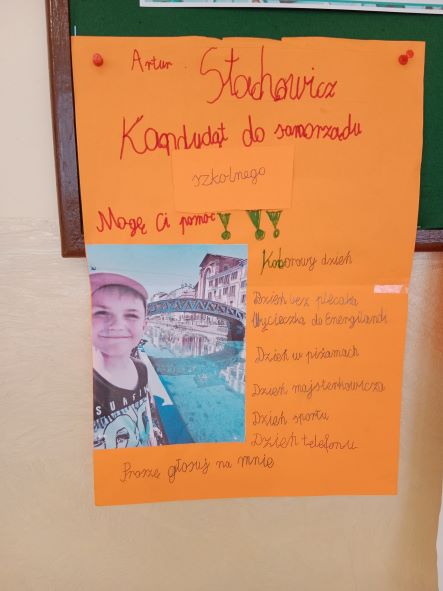 Artur Stachowicz
Kandudat do samorządu
szkolnego
Mogę Ci pomóc !!!
Kolorowy dzień
Dzień bez plecaka
Wycieczka do Energilandi
Dzień w piżamach
Dzień najsterkowicza
Dzień sportu
Dzień telefonu
Proszę głosuj na mnie
SURF